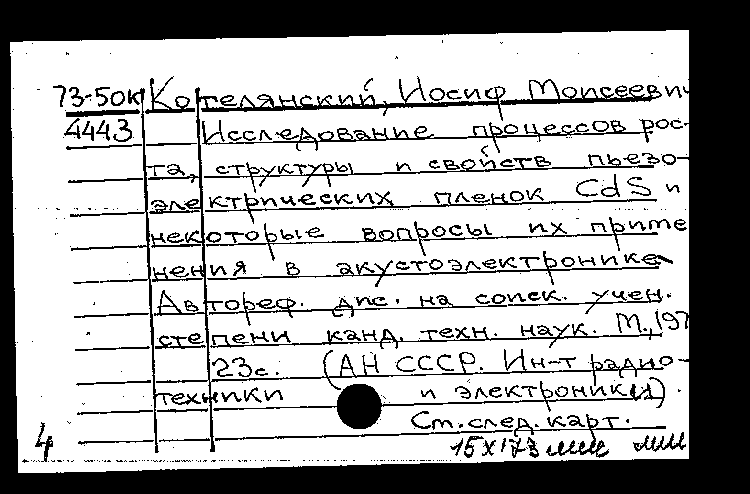 73-50к Котелянский, Иосиф Моисеевич
4443 Исследование процессов рос-
та, структуры и свойств пьезо-
электрических пленок CdS и
некоторые вопросы их приме
нения в акустоэлектронике.
Автореф. дис. на соиск. учен.
степени канд. техн. наук. М., 197
23с. (АН СССР. Ин-т радио-
техники и электроники).
См. след. карт.
4 15 X 73